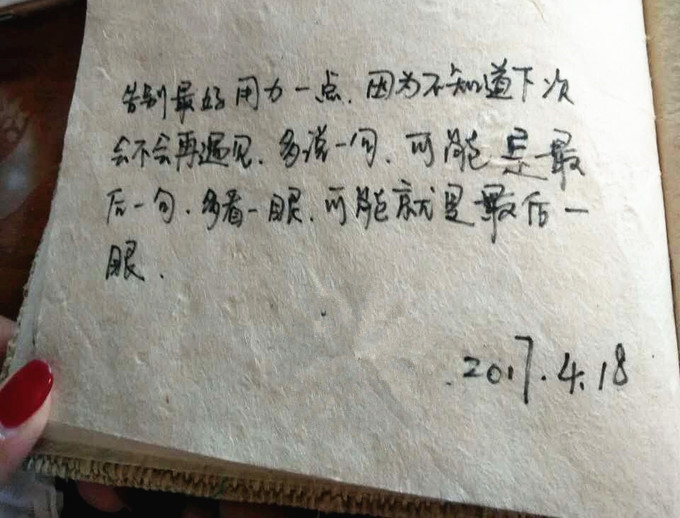 告别最好用力一点.因为不知道下次
会不会再遇见.多说一句.可能是最
后一句.多看一眼.可能就是最后一
眼.
2017.4.18